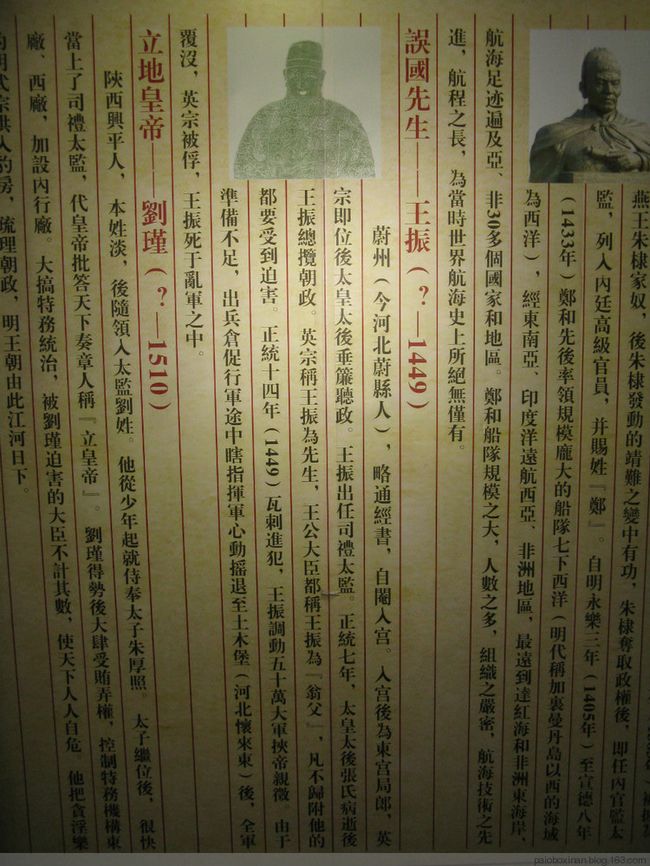 燕王朱棣家奴，後朱棣發動的靖難之變中有功，朱棣奪取政權後，即任內官監太
監，列入內廷高級官員，并賜姓『鄭』。自明永樂三年（1405年）至宣德八年
（1433年）鄭和先後率領規模龐大的船隊七下西洋（明代稱加裏曼丹島以西的海域
為西洋），經東南亞、印度洋遠航西亞、非洲地區，最遠到達紅海和非洲東海岸，
航海足迹遍及亞、非30多個國家和地區。鄭和船隊規模之大，人數之多，組織之嚴密，航海技術之先
進，航程之長，為當時世界航海史上所絕無僅有。
誤國先生——王振（？—1449）
蔚州（今河北蔚縣人），略通經書，自閹入宮。入宮後為東宮局郎，英
宗即位後太皇太後垂簾聽政。王振出任司禮太監。正統七年，太皇太後張氏病逝後
王振總攬朝政。英宗稱王振為先生，王公大臣都稱王振為『翁父』，凡不歸附他的
都要受到迫害。正統十四年（1449）瓦剌進犯，王振調動五十萬大軍挾帝親徵　由于
準備不足，出兵倉促行軍途中瞎指揮軍心動搖退至土木堡（河北懷來東）後，全軍
覆沒，英宗被俘，王振死于亂軍之中。
立地皇帝——劉瑾（？—1510）
陝西興平人，本姓淡，後隨領入太監劉姓。他從少年起就侍奉太子朱厚照。太子繼位後，很快
當上了司禮太監，代皇帝批答天下奏章人稱『立皇帝』。劉瑾得勢後大肆受賄弄權，控制特務機構東
廠、西廠，加設內行廠。大搞特務統治，被劉瑾迫害的大臣不計其數，使天下人人自危。他把貪淫樂
的明武宗哄入豹房，疏理朝政，明王朝由此江河日下。
paioboxinan.blog.163.com